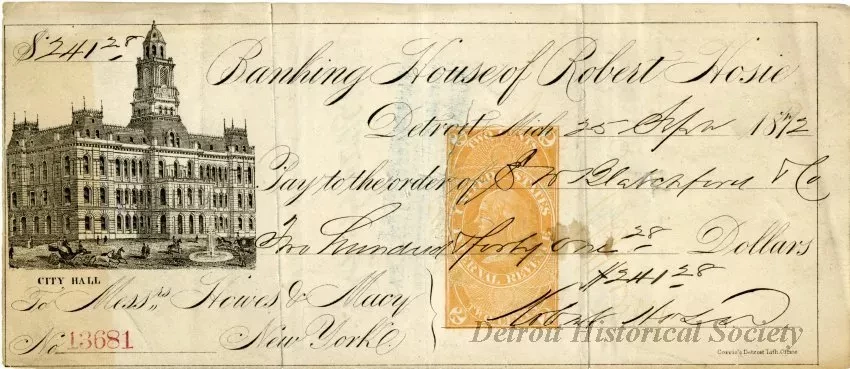 $241 28
Banking House of Robert Hosie
Detroit, Mich 25 Sept 1872
Pay to the order of E W Blatchford & Co
Two hundred & forty one 28 Dollars
$241 28
CITY HALL
To Mess.rs Howes & Macy
No. 13681 New York
Robert Hosie
TWO CENTS
UNITED STATES
INTERNAL REVENUE
2
2
Detroit Historical Society
Corrie's Detroit Lith. Office